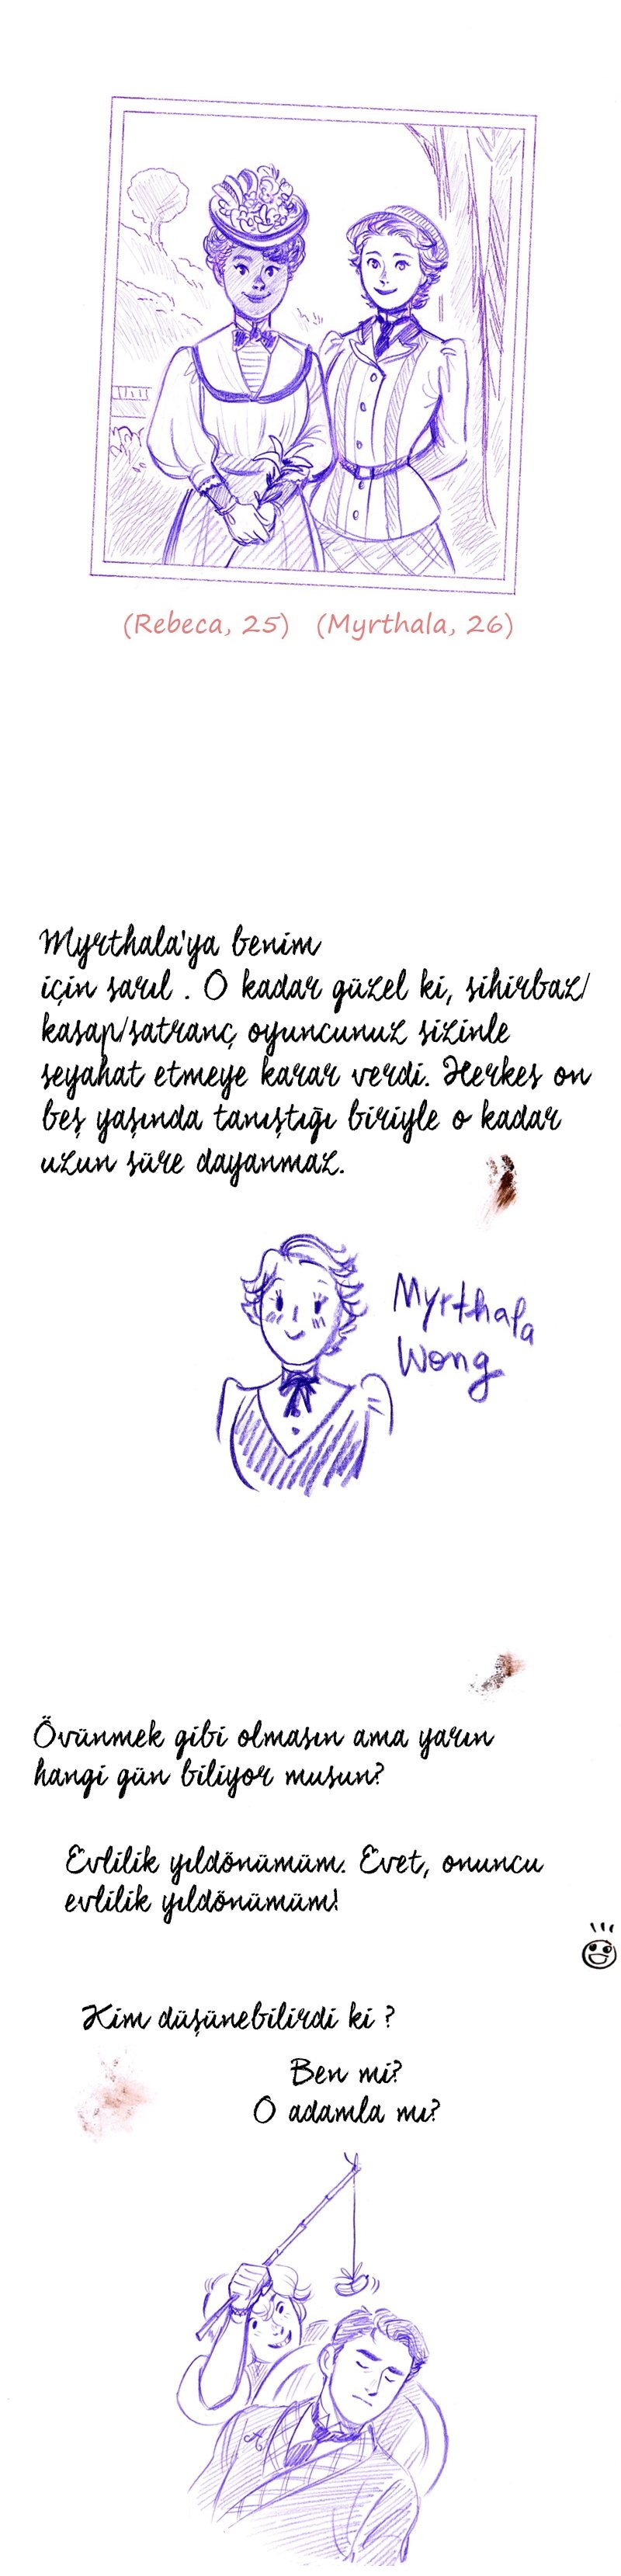 (Rebeca, 25) (Myrthala, 26)
Myrthala'ya benim
için sarıl . O kadar güzel ki, sihirbaz/
kasap/satranç oyuncunuz sizinle
seyahat etmeye karar verdi. Herkes on
beş yaşında tanıştığı biriyle o kadar
uzun süre dayanmaz.
Myrthala
Wong
Övünmek gibi olmasın ama yarın
hangi gün biliyor musun?
Evlilik yıldönümüm. Evet, onuncu
evlilik yıldönümüm!
Kim düşünebilirdi ki ?
Ben mi?
O adamla mı?